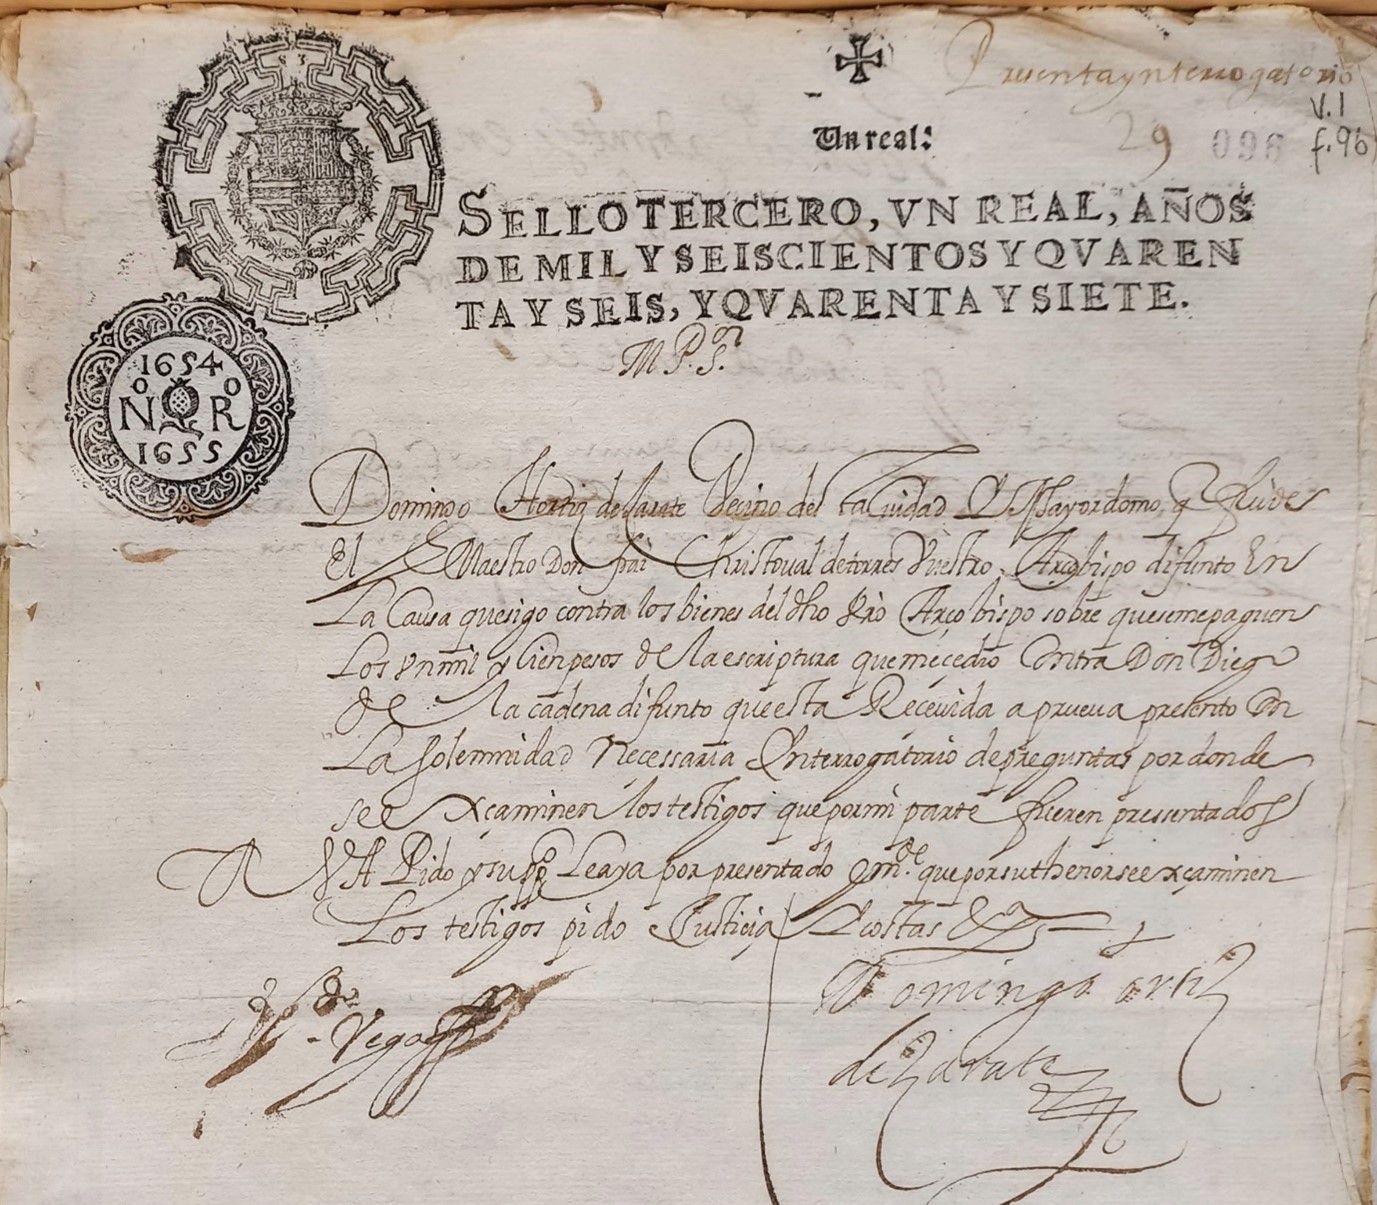 Presenta ynterrogatorio
V.1
Un real:
29 096 f.96
SELLO TERCERO, VN REAL, AÑOS
DE MIL Y SEISCIENTOS Y QVAREN
TA Y SEIS, Y QVARENTA Y SIETE.
M P. S.or
1654
NR
1655
Domingo Hortiz de Sarate Vecino desta Ciudad y Mayordomo q fui des
El Maestro Don frai Christoual de torres Vuestro Arçobispo difunto En
La Causa que sigo contra los bienes del dho Rdo Arçobispo sobre que se me paguen
Los Vn mil y Cien pesos de la escriptura que me çedio Contra Don Diego
de la cadena difunto que esta Reçeuida a prueua presento Con
La solemnidad Necessaria Ynterrogatorio de preguntas por donde
se exçaminen los testigos que por mi parte fueren presentados
A V A Pido y supco Le aya por presentado y mde que por su thenor se exçaminen
Los testigos pido Justicia Y costas &a
Domingo ortiz
de Zarate
Vega